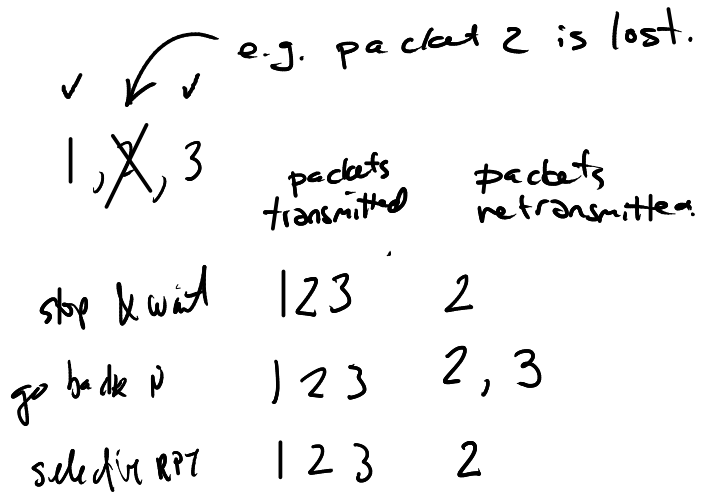 e.g. packet 2 is lost.
✓ ✓
1, 2, 3
packets transmitted packets retransmitted
stop & wait 1 2 3 2
go back N 1 2 3 2, 3
selective RPT 1 2 3 2